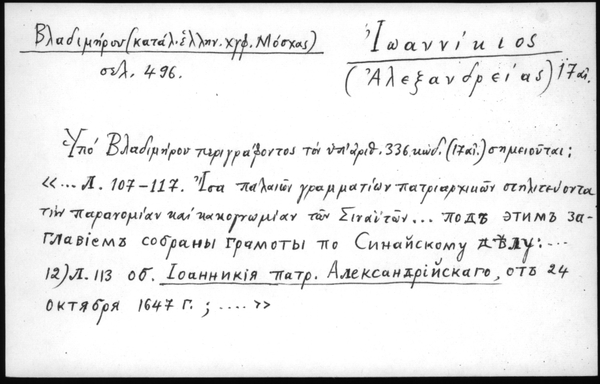 Βλαδιμήρου (κατάλ. ἑλλην. χγφ. Μόσχας)
σελ. 496.
Ἰωαννίκιος
(Ἀλεξανδρείας) 17 αἰ.
Ὑπό Βλαδιμήρου περιγράφοντος τόν ὑπ' ἀριθ. 336 κώδ. (17 αἰ.) σημειοῦται:
«... Л. 107-117. Ἴσα παλαιῶν γραμματίων πατριαρχικῶν στηλιτεύοντα
τὴν παρανομίαν καί κακογνωμίαν τῶν Σιναϊτῶν... подъ этимъ за-
главіемъ собраны грамоты по Синайскому дѣлу: ...
12) Л. 113 об. Іоанникія патр. Александрійскаго, отъ 24
октября 1647 г.; .... »